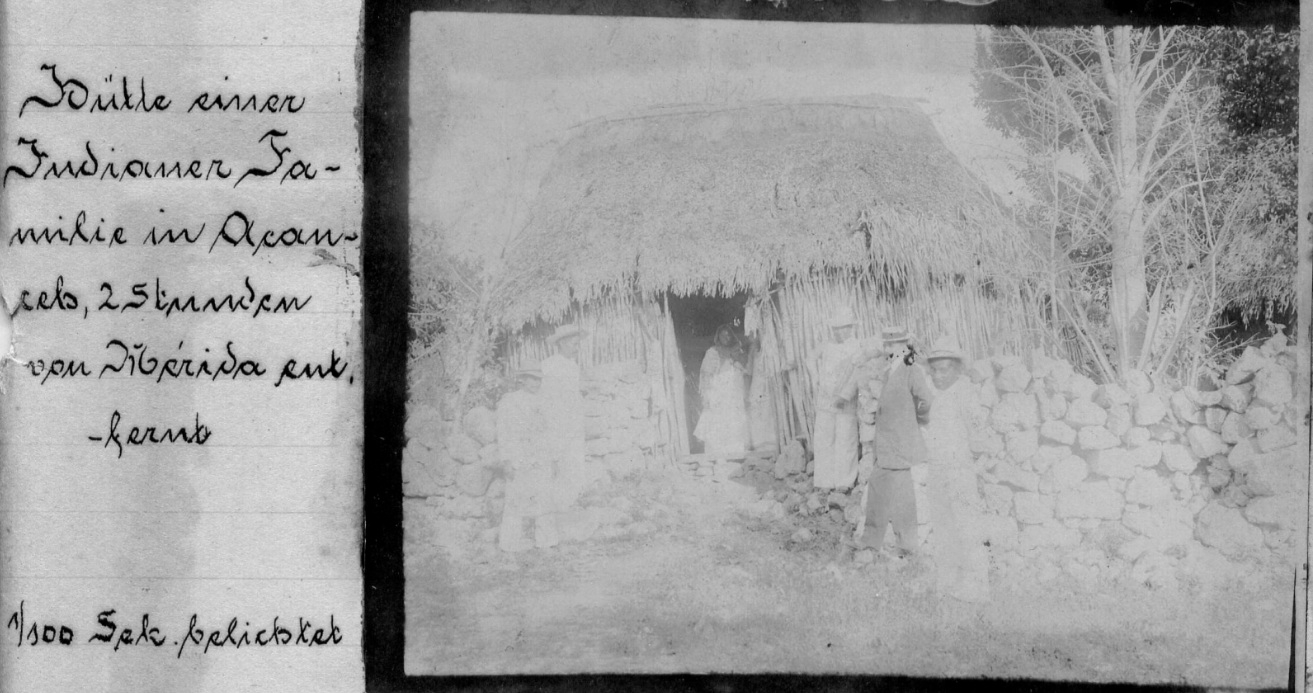 Hütte einer
Indianer Fa-
milie in Acan-
ceh, 2 Stunden
von Mérida ent,
-fernt
1/100 Sek. belichtet